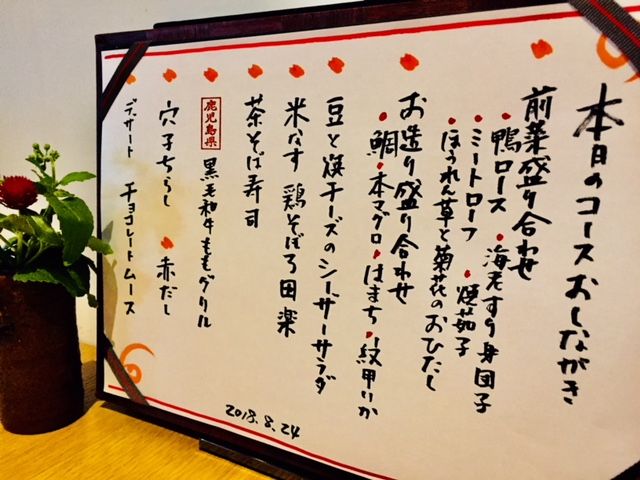 本日のコースおしながき
前菜盛り合わせ
・鴨ロース ・海老すり身団子
・ミートローフ ・焼茄子
・ほうれん草と菊花のおひたし
お造り盛り合わせ
・鯛・本マグロ・はまち・紋甲いか
豆と燻チーズのシーザーサラダ
米なす 鶏そぼろ田楽
茶そば寿司
鹿児島県 黒毛和牛ももグリル
穴子ちらし ・赤だし
デザート チョコレートムース
2018.8.24